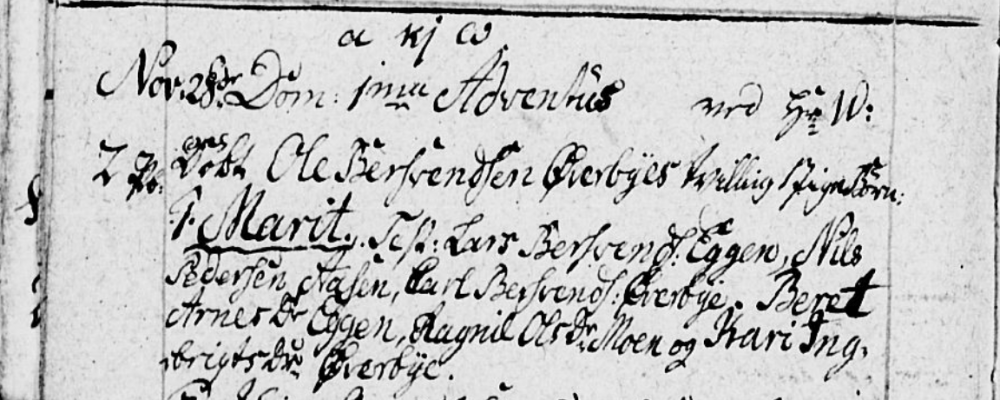 Nov: 28de Dom: 1ma Adventus ved Hr W:
2 Døbt Ole Bersvendsen Øverbyes tvilling Pigebørn:
1. Marit. Test: Lars Bersvends: Eggen, Nils
Pedersen Aasen, Carl Bersvends: Øverbye. Beret
Arnes Dr Eggen, Ragnil Ols Dr Moen og Kari Ing-
brigts Dr Øverbye.